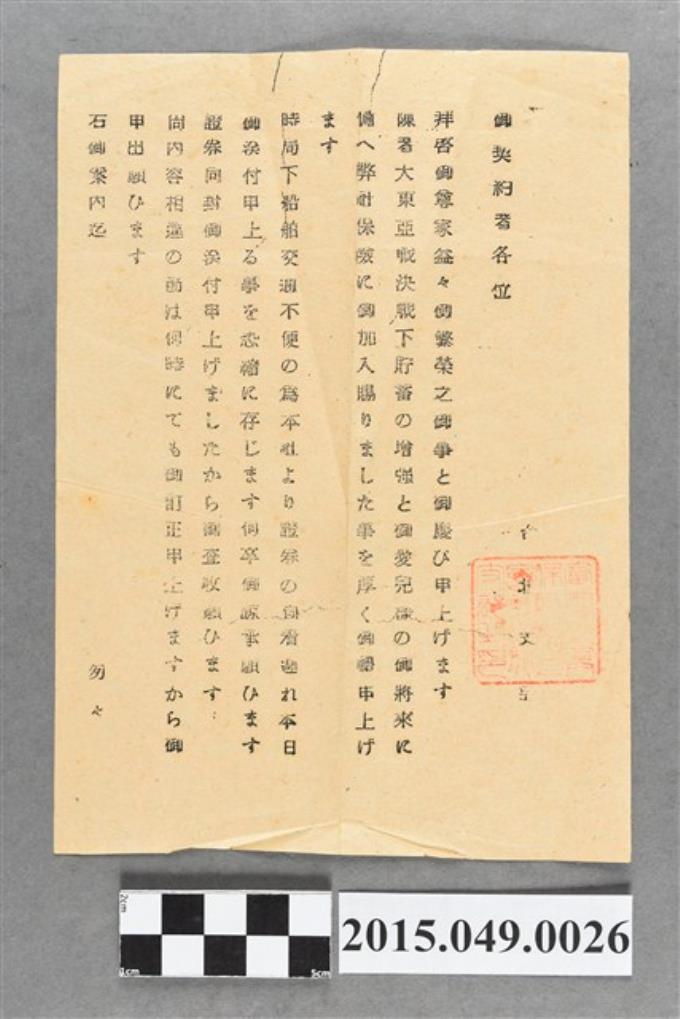 御契約者各位
台北支
拝啓御尊家益々御繁榮之御事と御慶び申上げます
陳者大東亞戰決戰下貯蓄の增强と御愛兒樣の御將來に
備へ弊社保險に御加入賜りました事を厚く御禮申上げ
ます
時局下船舶交通不便の爲本社より證券の到着遲れ本日
御送付申上る事を恐縮に存じます何卒御諒承願ひます
證券同封御送付申上げましたから御查收願ひます
尙內容相違の節は何時にても御訂正申上げますから御
申出願ひます
右御案內迄
匆々
2cm
1cm
5cm
2015.049.0026